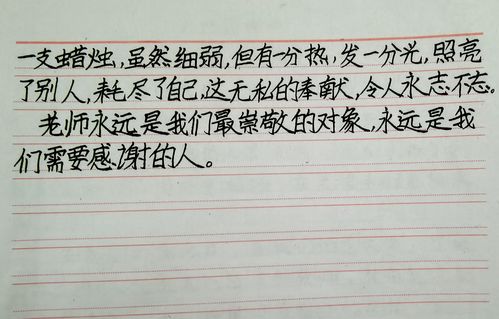 一支蜡烛，虽然细弱，但有一分热，发一分光，照亮
了别人，耗尽了自己，这无私的奉献，令人永志不忘。
老师永远是我们最崇敬的对象，永远是我
们需要感谢的人。